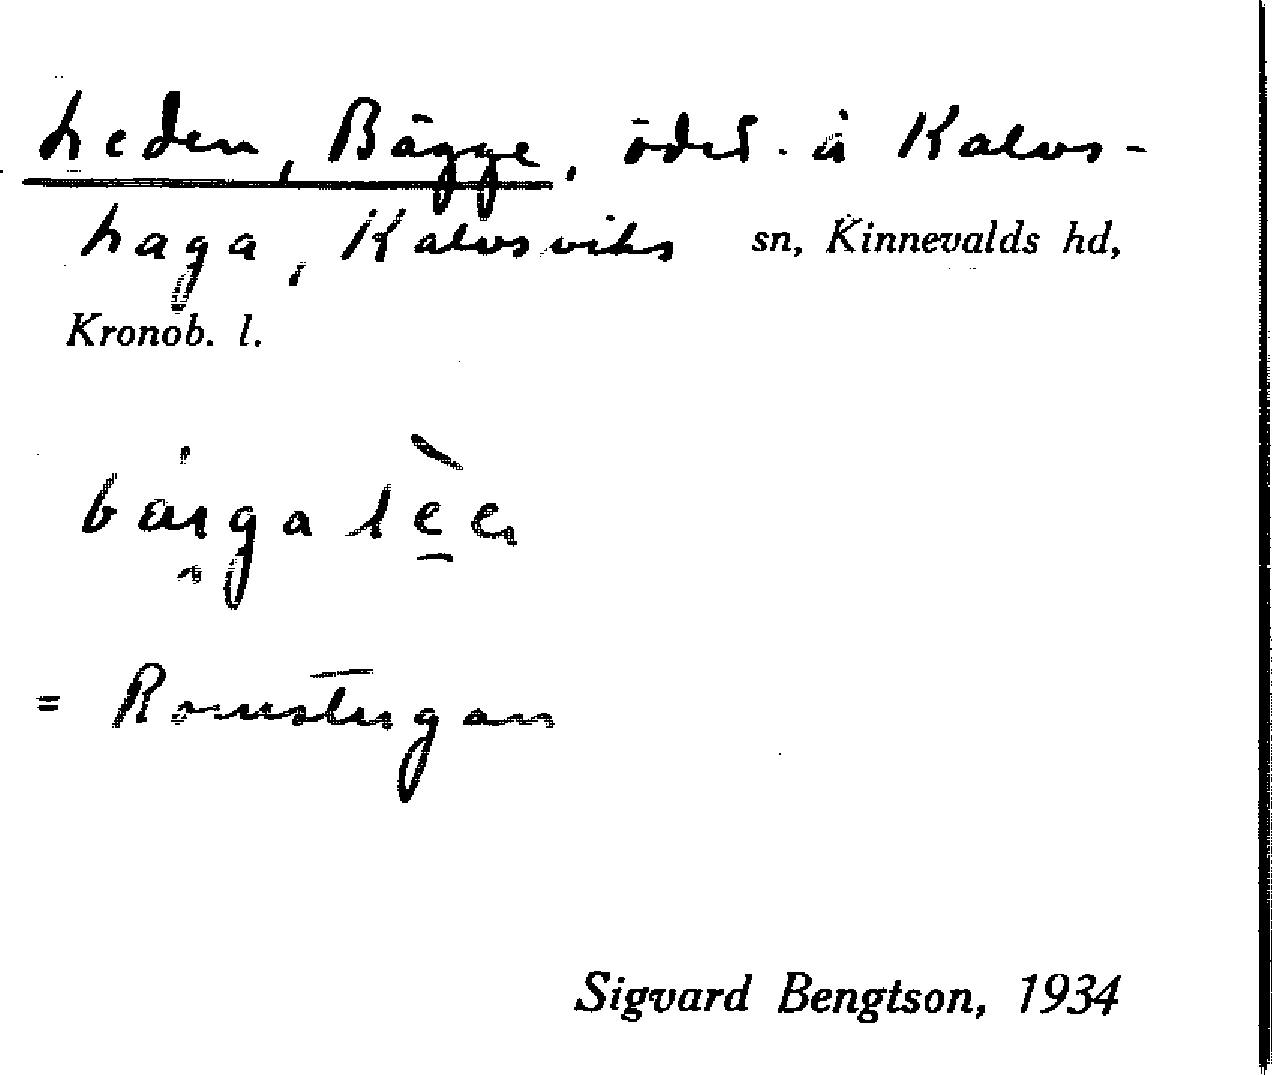 heden, Bägge, ödel. å Kalvs-
haga, Kalvsviks sn, Kinnevalds hd,
Kronob. l.
= Romstugan
Sigvard Bengtson, 1934